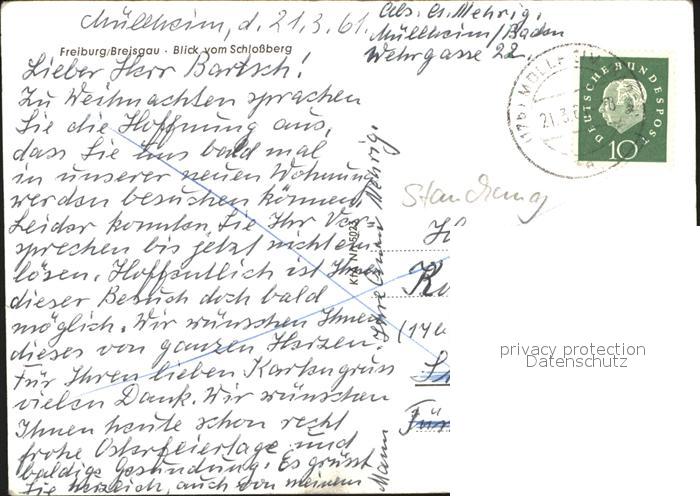 Müllheim, d. 21.3.61.
Abs. A. Mehrig.
Müllheim/Baden
Wehrgasse 22.
Freiburg/Breisgau · Blick vom Schloßberg
Lieber Herr Bartsch!
Zu Weihnachten sprachen
Sie die Hoffnung aus,
dass Sie uns bald mal
in unserer neuen Wohnung
werden besuchen können.
Leider konnten Sie Ihr Ver-
sprechen bis jetzt nicht ein-
lösen. Hoffentlich ist Ihnen
dieser Besuch doch bald
möglich. Wir wünschen Ihnen
dieses von ganzen Herzen.
Für Ihren lieben Kartengruss
vielen Dank. Wir wünschen
Ihnen heute schon recht
frohe Osterfeiertage und
baldige Gesundung. Es grüsst
Sie herzlich, auch von meinem
Mann Ihre Mehrig.
DEUTSCHE BUNDESPOST
10
21.3.
(14
Für
privacy protection
Datenschutz